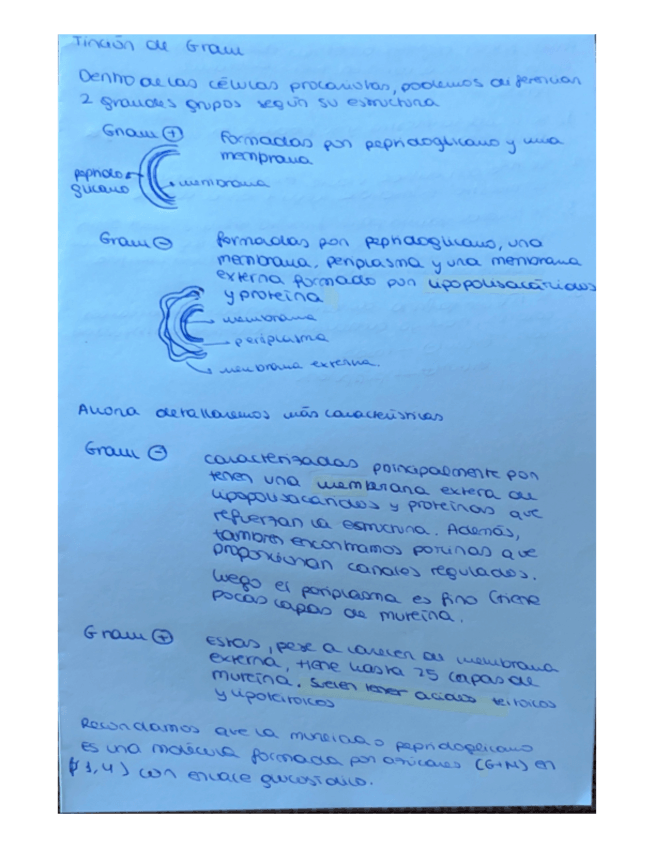 Tinción de Gram
Dentro de las células procariotas, podemos diferenciar
2 grandes grupos según su estructura
Gram ⊕ formadas por peptidoglicano y una
membrana
peptido
glicano
membrana
Gram ⊖ formadas por peptidoglicano, una
membrana, periplasma y una membrana
externa formado por lipopolisacáridos
y proteína
membrana
periplasma
membrana externa.
Ahora detallaremos más características
Gram ⊖ caracterizadas principalmente por
tener una membrana extera de
lipopolisacaridos y proteínas que
refuerzan la estructura. Además,
también encontramos porinas que
proporcionan canales regulados.
Luego el periplasma es fino (tiene
pocas capas de mureína.
Gram ⊕ Estas, pese a carecer de membrana
externa, tiene hasta 25 capas de
mureína. Suelen tener acidos teicoicos
y lipoteicoicos
Recordamos que la mureína o peptidoglicano
es una molécula formada por azúcares (G+M) en
β(1,4) con enlace glucosídico.